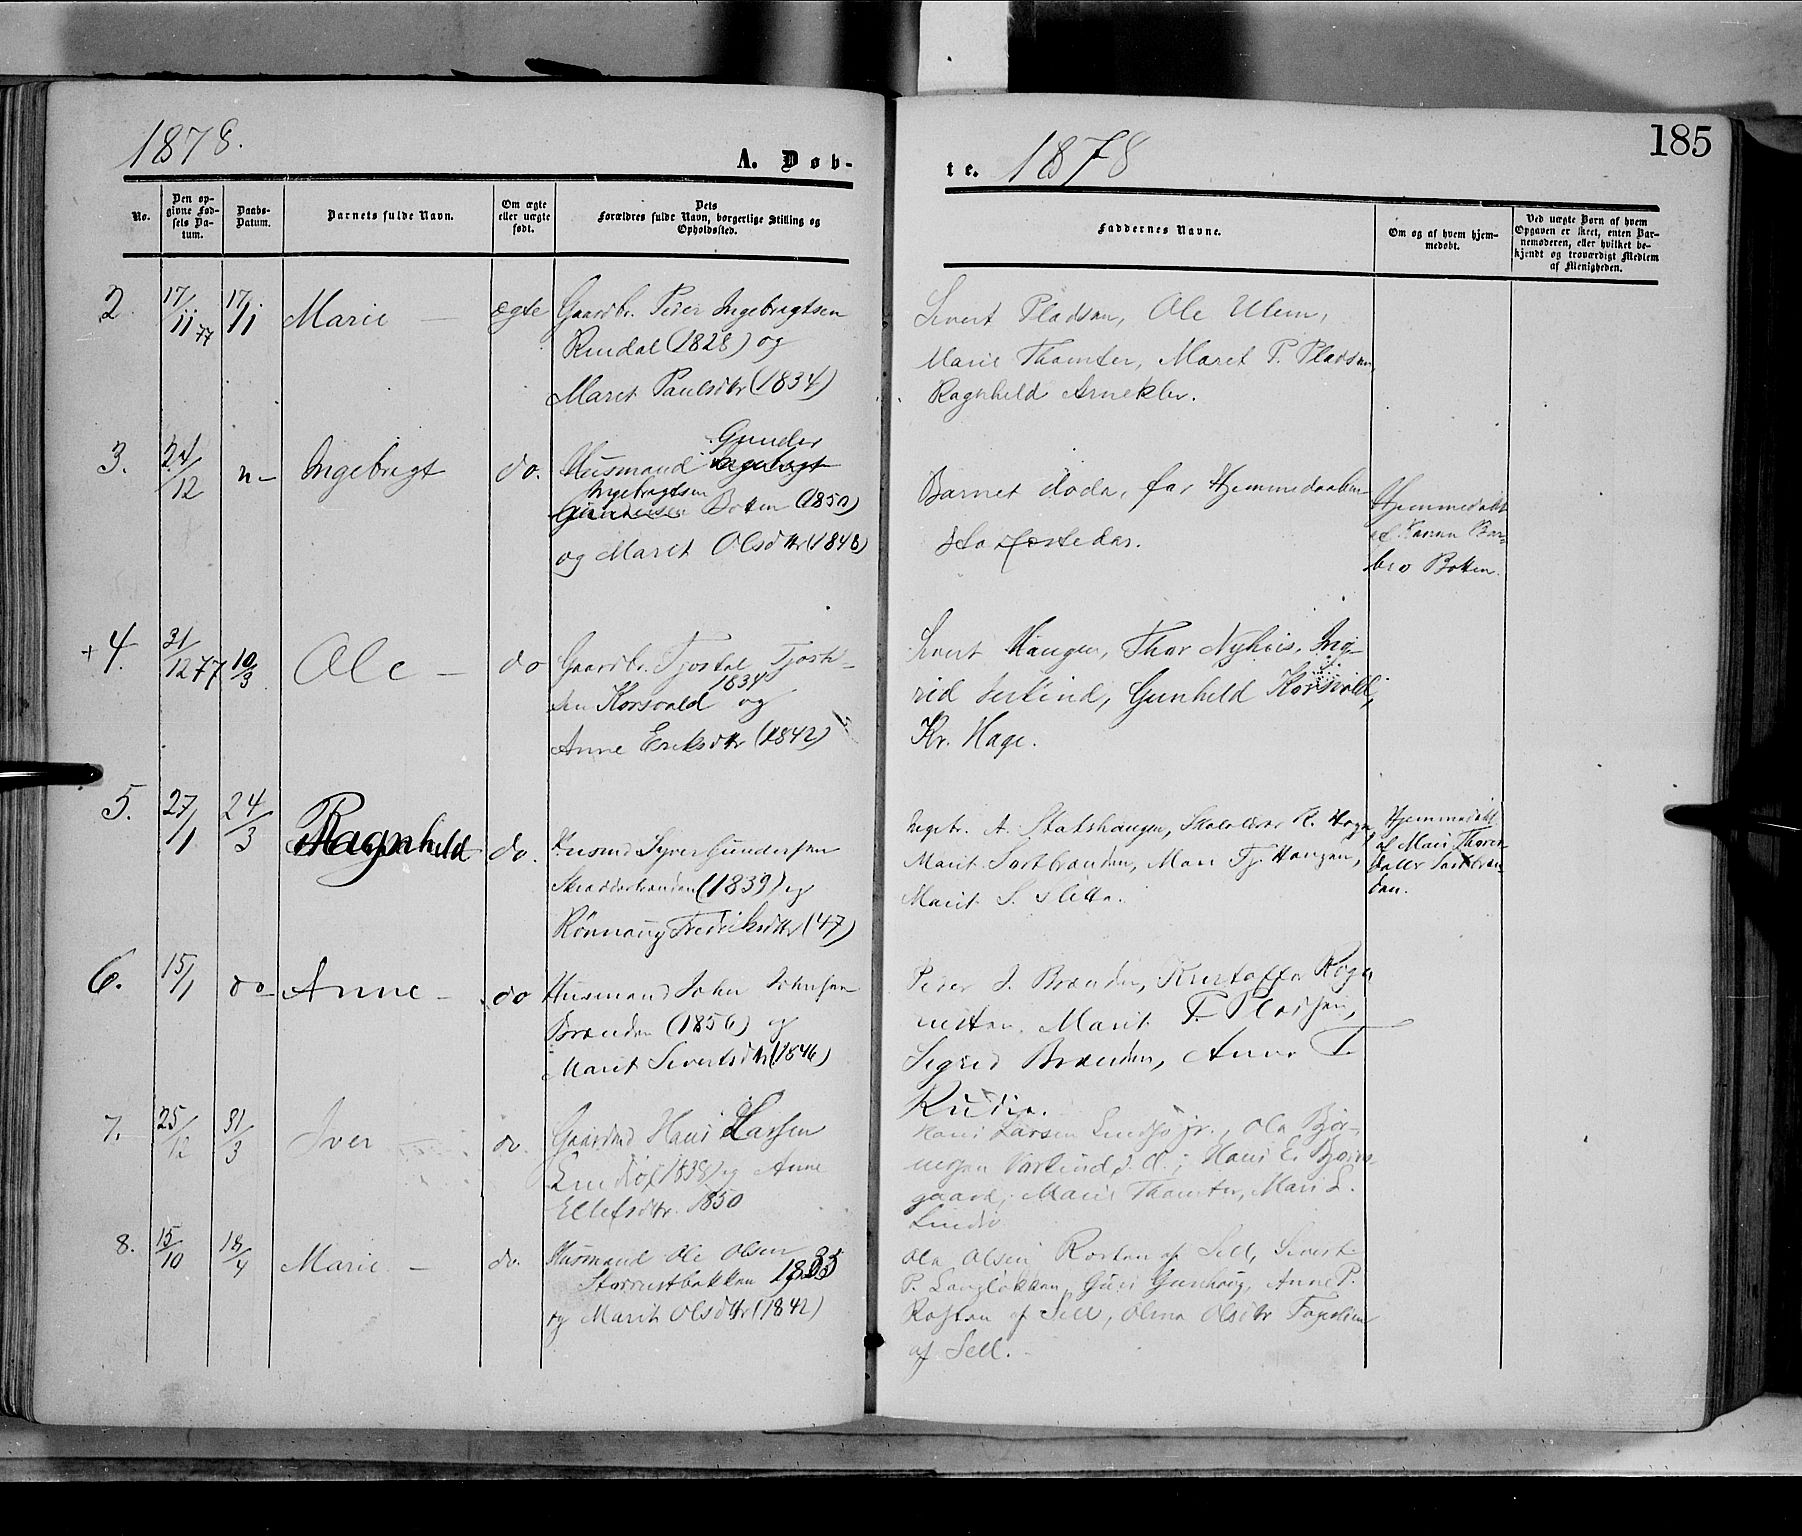 1878.
A. Døb-
te. 1878
185
No.
Den op-
givne Fød-
sels Da-
tum.
Daabs-
Datum.
Barnets fulde Navn.
Om ægte
eller uægte
født.
Dets
Forældres fulde Navn, borgerlige Stilling og
Opholdssted.
Faddernes Navne.
Om og af hvem hjem-
medøbt.
Ved uægte Børn af hvem
Opgaven er skeet, enten Bar-
nemoderen, eller hvilket be-
kjendt og troværdigt Medlem
af Menigheden.
2.
17/11 77
17/11
Marie —
ægte
Gaardbr. Peder Ingebragtsen
Rindal (1828) og
Maret Paulsdtr (1834)
Sivert Pladsen, Ole Ulem,
Marie Thamter, Maret P. Pladsen
Ragnheld Arneklev.
3.
24/12
n-
Ingebrigt
do.
Gunder
Husmand Ingebrigt
Ingebrigtsen
Gundersen Botten (1850)
og Marit Olsdtr (1848)
Barnet døde, før Hjemmedaaben
stadfæstedes.
Hjemmedøbt
af Konen Bar-
bro Botten.
+ 4.
31/12 77
10/3
Ole —
do
Gaardbr. Tjostel Tjost-
1834
sen Korsvold og
Anne Eriksdtr (1842)
Sivert Haugen, Thor Nyhus, Ing-
rid Lerkind, Gunheld Korsvold,
Kr. Hage.
5.
27/1
24/3
Ragnheld
do.
Husmd Syver Gundersen
Skradderbrænden (1839) og
Rønnaug Fredriksdtr (47)
Ingebr. A. Statshaugen, Skolelærer R. Hagen,
Marit Sortbrænden, Mari Tj. Haugen,
Marit S. Sletta.
Hjemmedøbt
af Mari Thores-
datter Sortbræn-
den.
6.
15/1
do
Anne —
do
Husmand John Johnsen
Brænden (1856) og
Marit Sivertsdtr (1846)
Peder J. Brænden, Kristoffer Rogn-
Marit T. Pladsen,
Sigrid Brænden, Anne T.
Rudin.
7.
25/12
31/3
Iver
do.
Gaardmd Hans Larsen
Lindsø (1838) og Anne
Ellefsdtr. 1850
Hans Larsen Lindsø jr., Ole Bjør-
Hans E. Bjørn-
gaard, Marie Thamter, Mari L.
Lindsø
8.
15/10
18/4
Marie —
do.
Husmand Ole Olsen
Storrustbakken 1835
og Marit Olsdtr (1842)
Ole Olsen Rosten af Sell, Sivert
P. Langløkken, Guri Gunhaug, Anne P.
Rosten af Sell, Olina Olsdtr
af Sell.